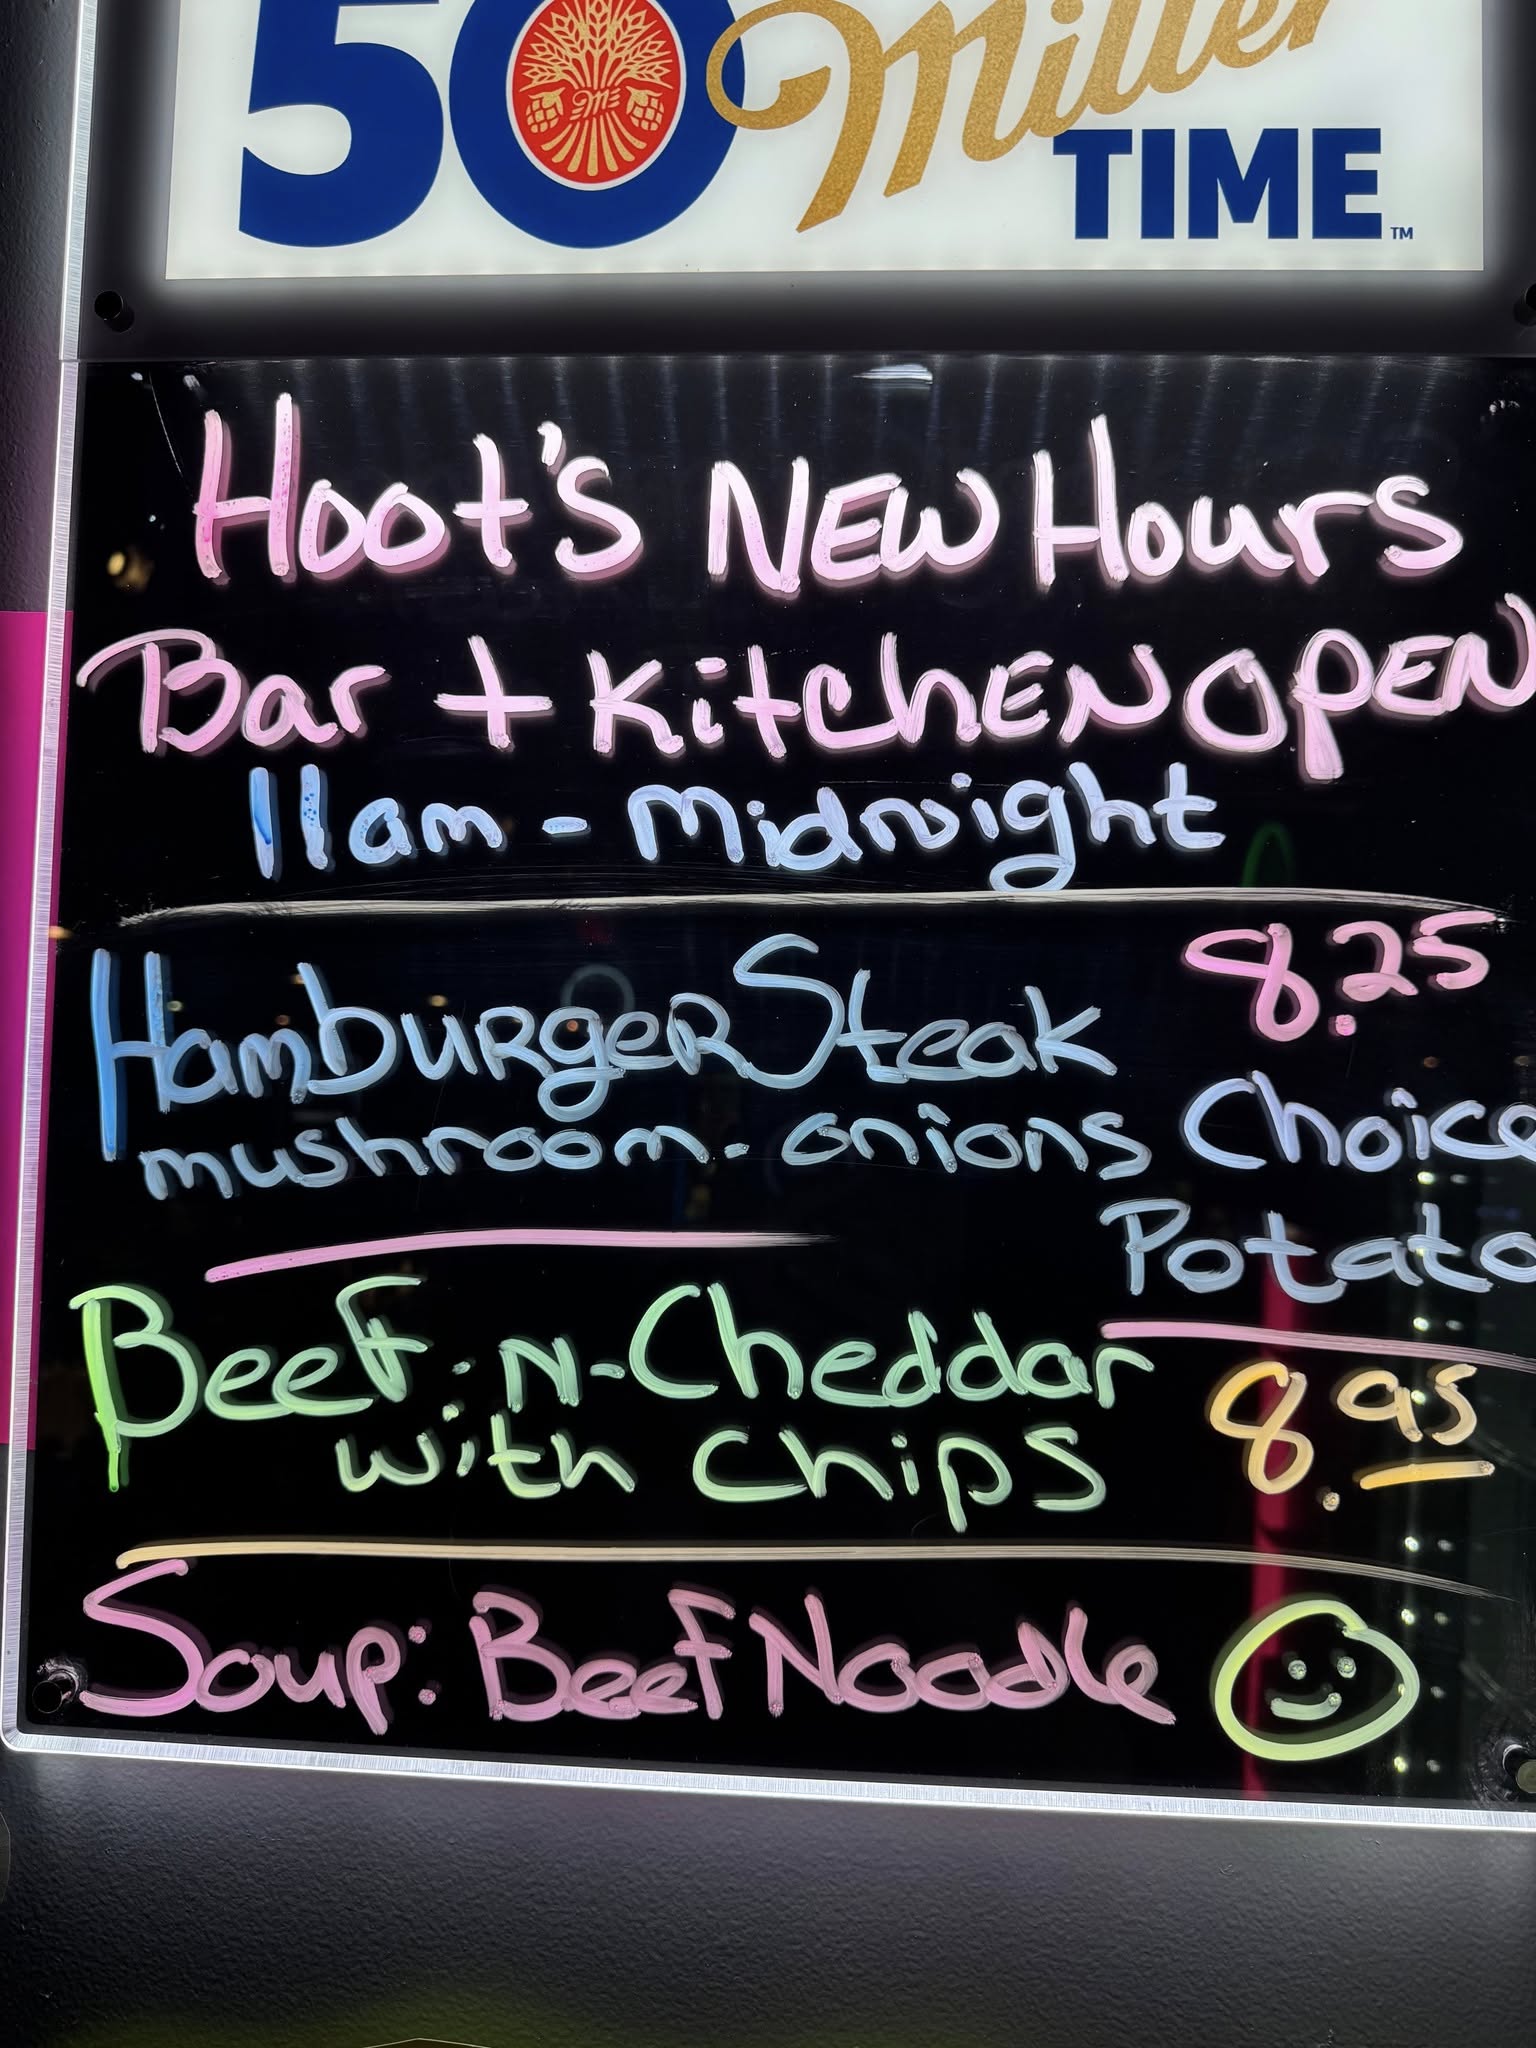 50 Miller
TIME™
Hoot's NEW Hours
Bar + KitchEN OpEN
11am - Midnight
Hamburger Steak 8.25
mushroom - onions Choice
Potato
Beef-N-Cheddar
with Chips
Soup: Beef Noodle